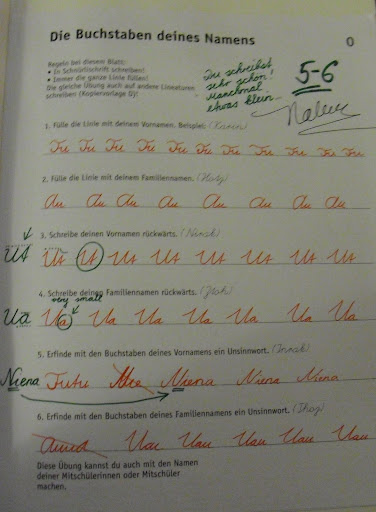 Die Buchstaben deines Namens
0
Regeln bei diesem Blatt:
• In Schnürlischrift schreiben!
• Immer die ganze Linie füllen!
Die gleiche Übung auch auf andere Lineaturen
schreiben (Kopiervorlage 0)!
Du schreibst
sehr schön!
Manchmal
etwas klein.
5-6
1. Fülle die Linie mit deinem Vornamen. Beispiel:
2. Fülle die Linie mit deinem Familiennamen.
au au au au au au au
3. Schreibe deinen Vornamen rückwärts.
4. Schreibe deinen Familiennamen rückwärts.
very small
Ua Ua Ua Ua Ua Ua Ua Ua
5. Erfinde mit den Buchstaben deines Vornamens ein Unsinnwort.
Niena Niena Niena Niena
6. Erfinde mit den Buchstaben deines Familiennamens ein Unsinnwort.
Uau Uau Uau Uau Uau
Diese Übung kannst du auch mit den Namen
deiner Mitschülerinnen oder Mitschüler
machen.